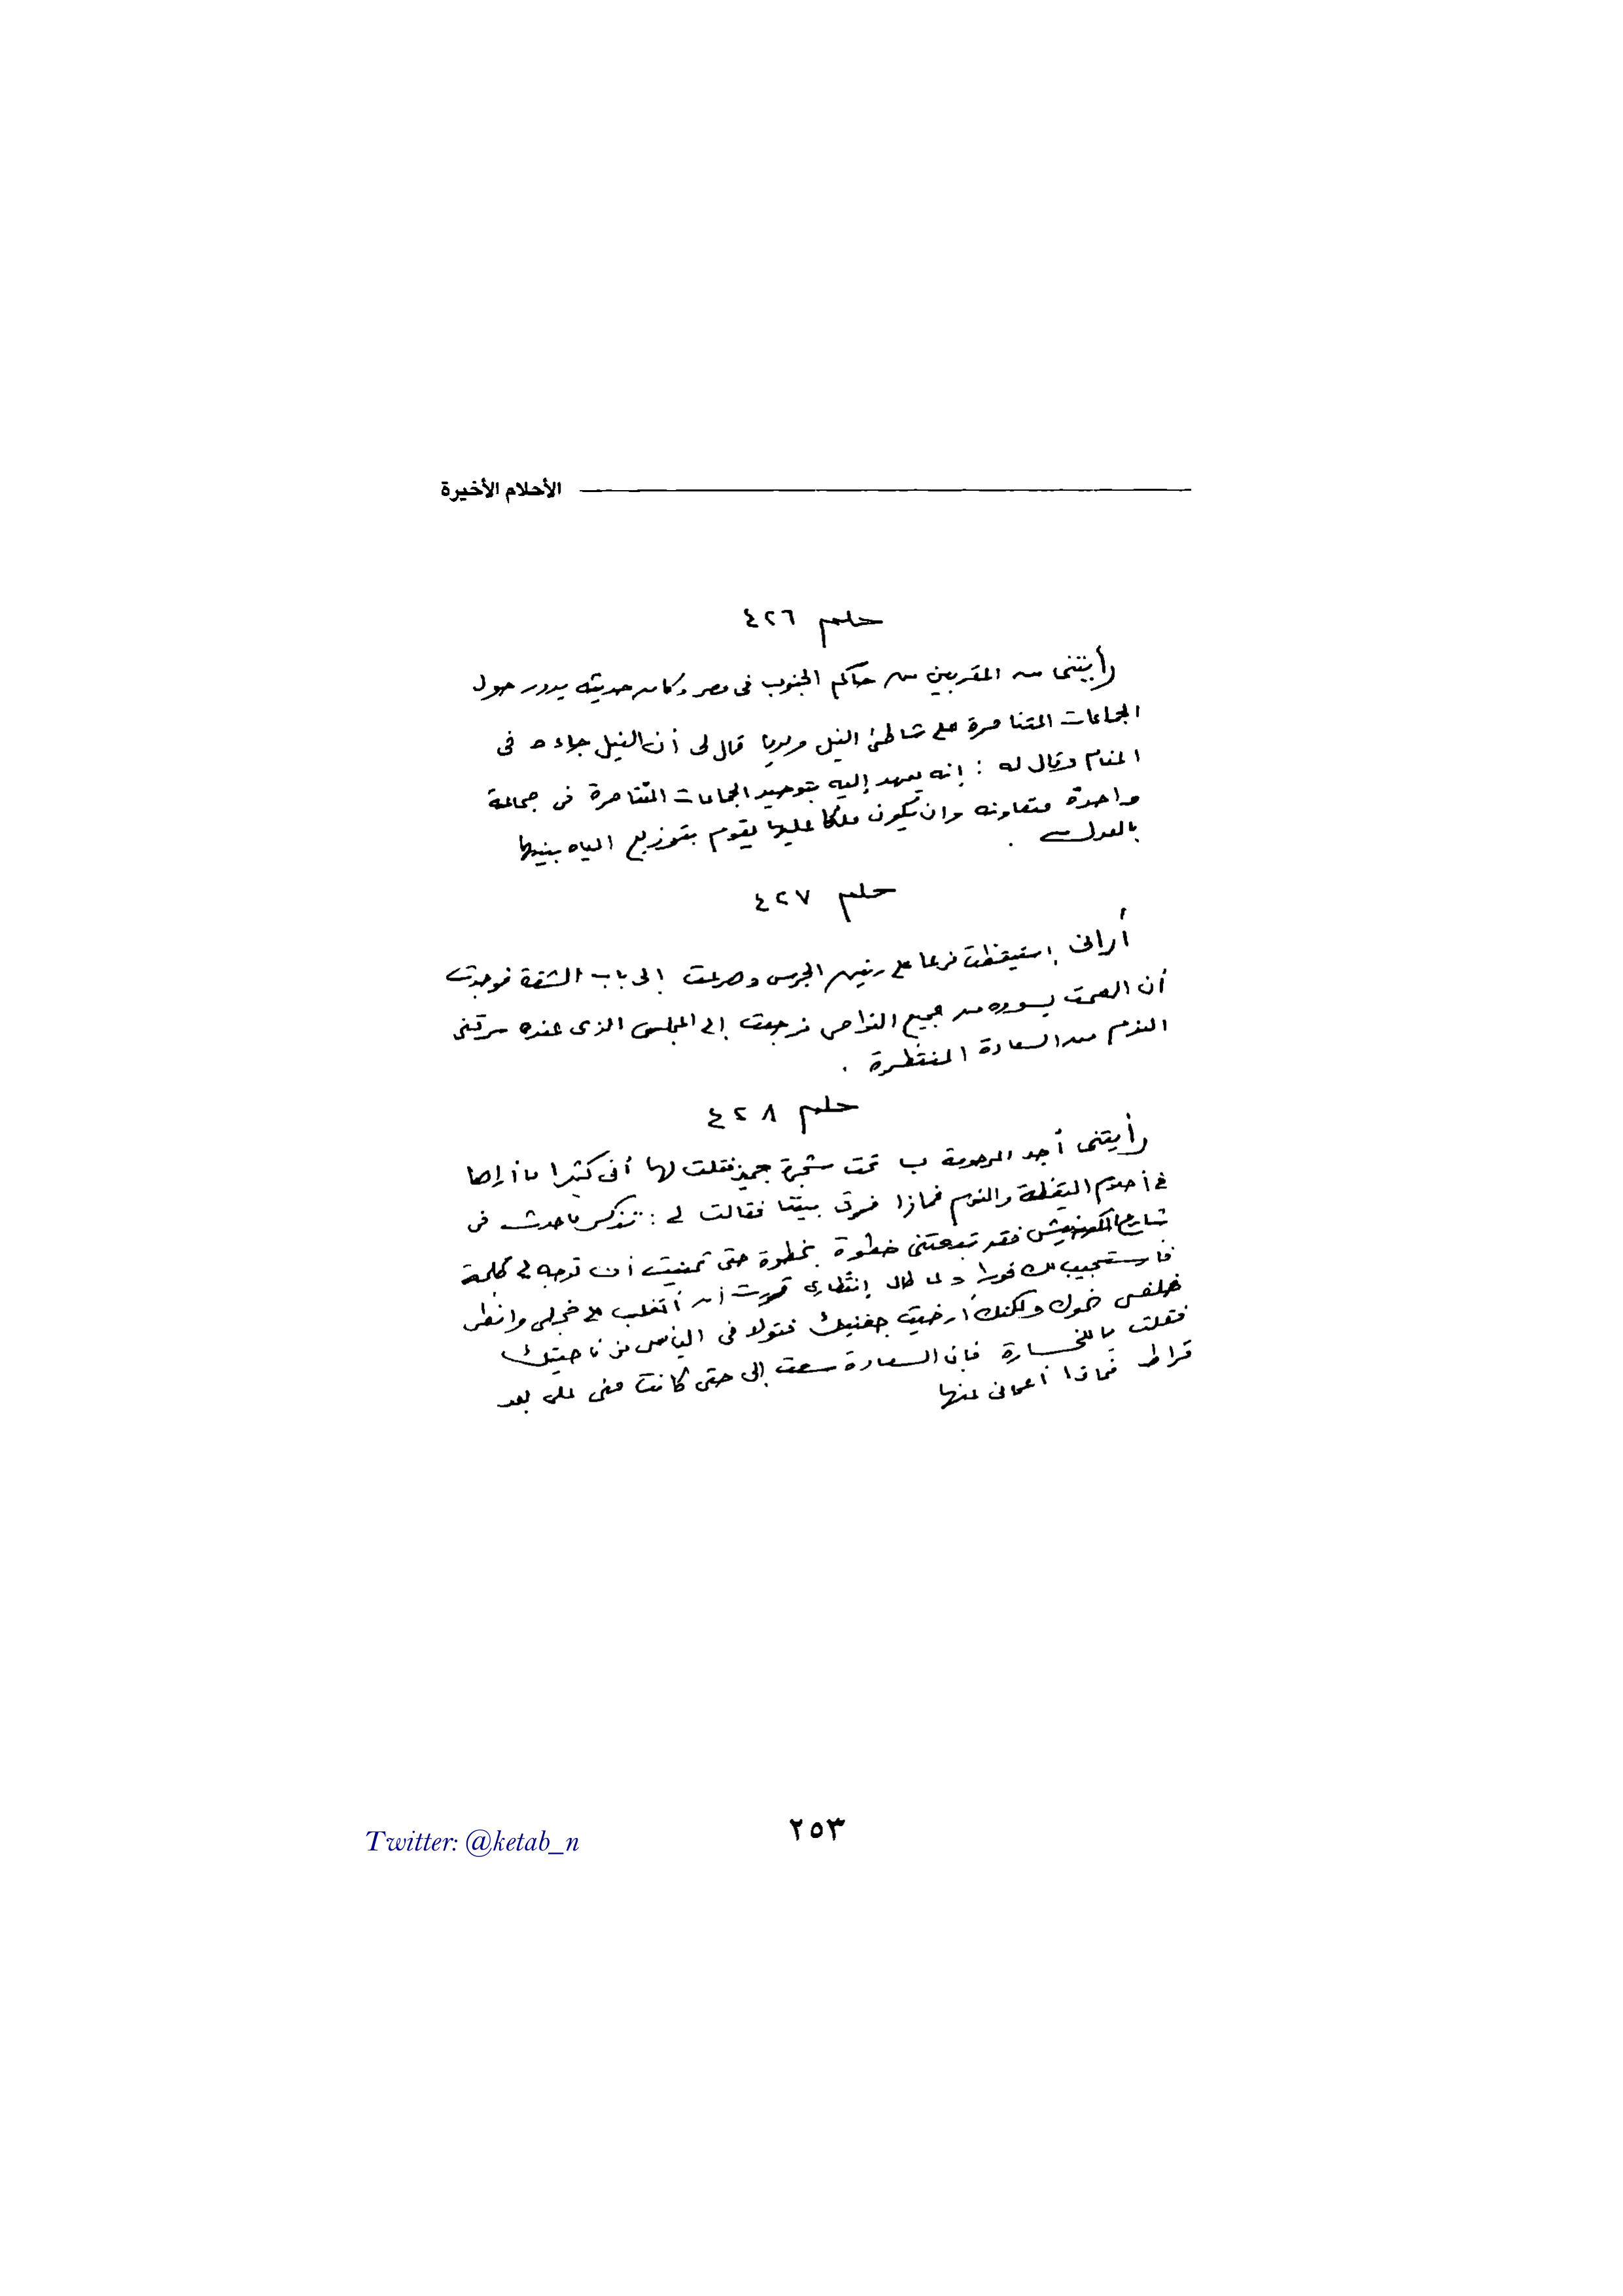 الأحلام الأخيرة
حلم ٤٢٦
رأيتنى من المقربين من حاكم الجنوب فى مصر وكان حديثه يدور حول
الجماعات المتناحرة على شاطئ النيل ويوما قال لى أن النيل جاءه فى
المنام وقال له : إنه يعهد إليه بتوحيد الجماعات المتناحرة فى جماعة
واحدة متعاونه وان يكون ملكا عليها يقوم بتوزيع المياه بينها
بالعدل .
حلم ٤٢٧
أرانى إستيقظت فزعا على رنين الجرس وهرعت إلى باب الشقة فوجدت
أن الصمت يسوده من جميع النواحى فرجعت إلى المجلس الذى عنده سرقنى
النوم من السعادة المنتظرة .
حلم ٤٢٨
رأيتنى أجد المرحومة ب تحت شجرة جميز فقلت لها أنى كثيرا ما أراها
فى أحلام اليقظة والنوم فماذا فرق بيننا فقالت لى : تذكر ما حدث فى
شارع فقد تبعتنى خطوة بخطوة حتى تمنيت أن توجه لى كلمة
فأستجيب لك فورا ولما طال إنتظارى قررت أن أتغلب على خجلى وانظر
خلفى نحوك ولكنك أرخيت جفنيك فتولانى اليأس من ناحيتك
فقلت ياللخسارة فإن السعادة سعت إلى حتى كانت منى على بعد
قراط فماذا أعمانى عنها
٢٥٣
Twitter: @ketab_n